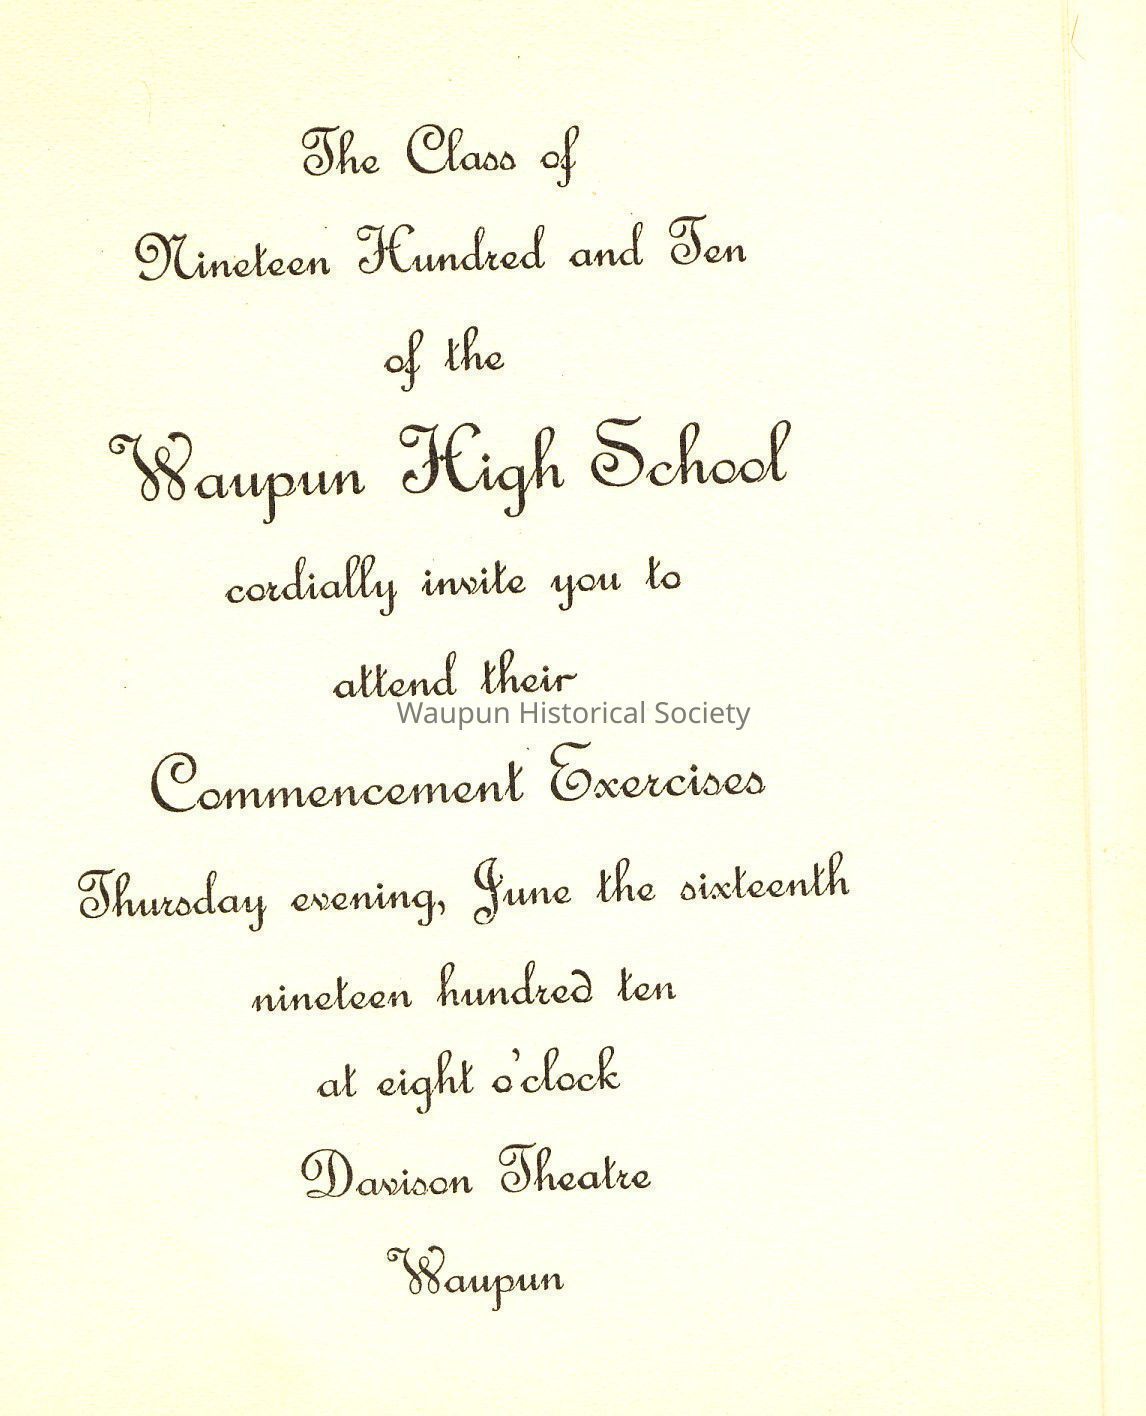 The Class of
Nineteen Hundred and Ten
of the
Waupun High School
cordially invite you to
attend their
Waupun Historical Society
Commencement Exercises
Thursday evening, June the sixteenth
nineteen hundred ten
at eight o'clock
Davison Theatre
Waupun